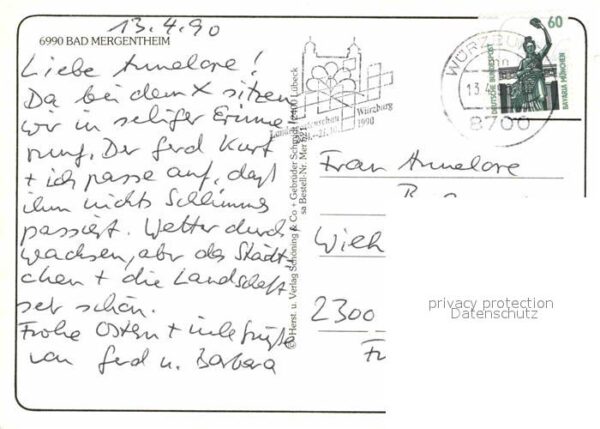 13.4.90
6990 BAD MERGENTHEIM
Liebe Annelore!
Da bei dem X sitzen
wir in seliger Erinne
rung. Der Gerd Kurt
+ ich passe auf, daß
ihm nichts Schlimmes
passiert. Wetter durch
wachsen, aber das Städt-
chen + die Landschaft
sehr schön.
Frohe Ostern + viele Grüße
von Gerd u. Barbara
© Herst. u. Verlag Schöning & Co + Gebrüder Schmidt, 2400 Lübeck
sa Bestell-Nr. Mer
Würzburg
1990
WÜRZBURG
13.4
8700
60
DEUTSCHE BUNDESPOST
BAVARIA MÜNCHEN
Frau Annelore
B
Wieh
2300
privacy protection
Datenschutz